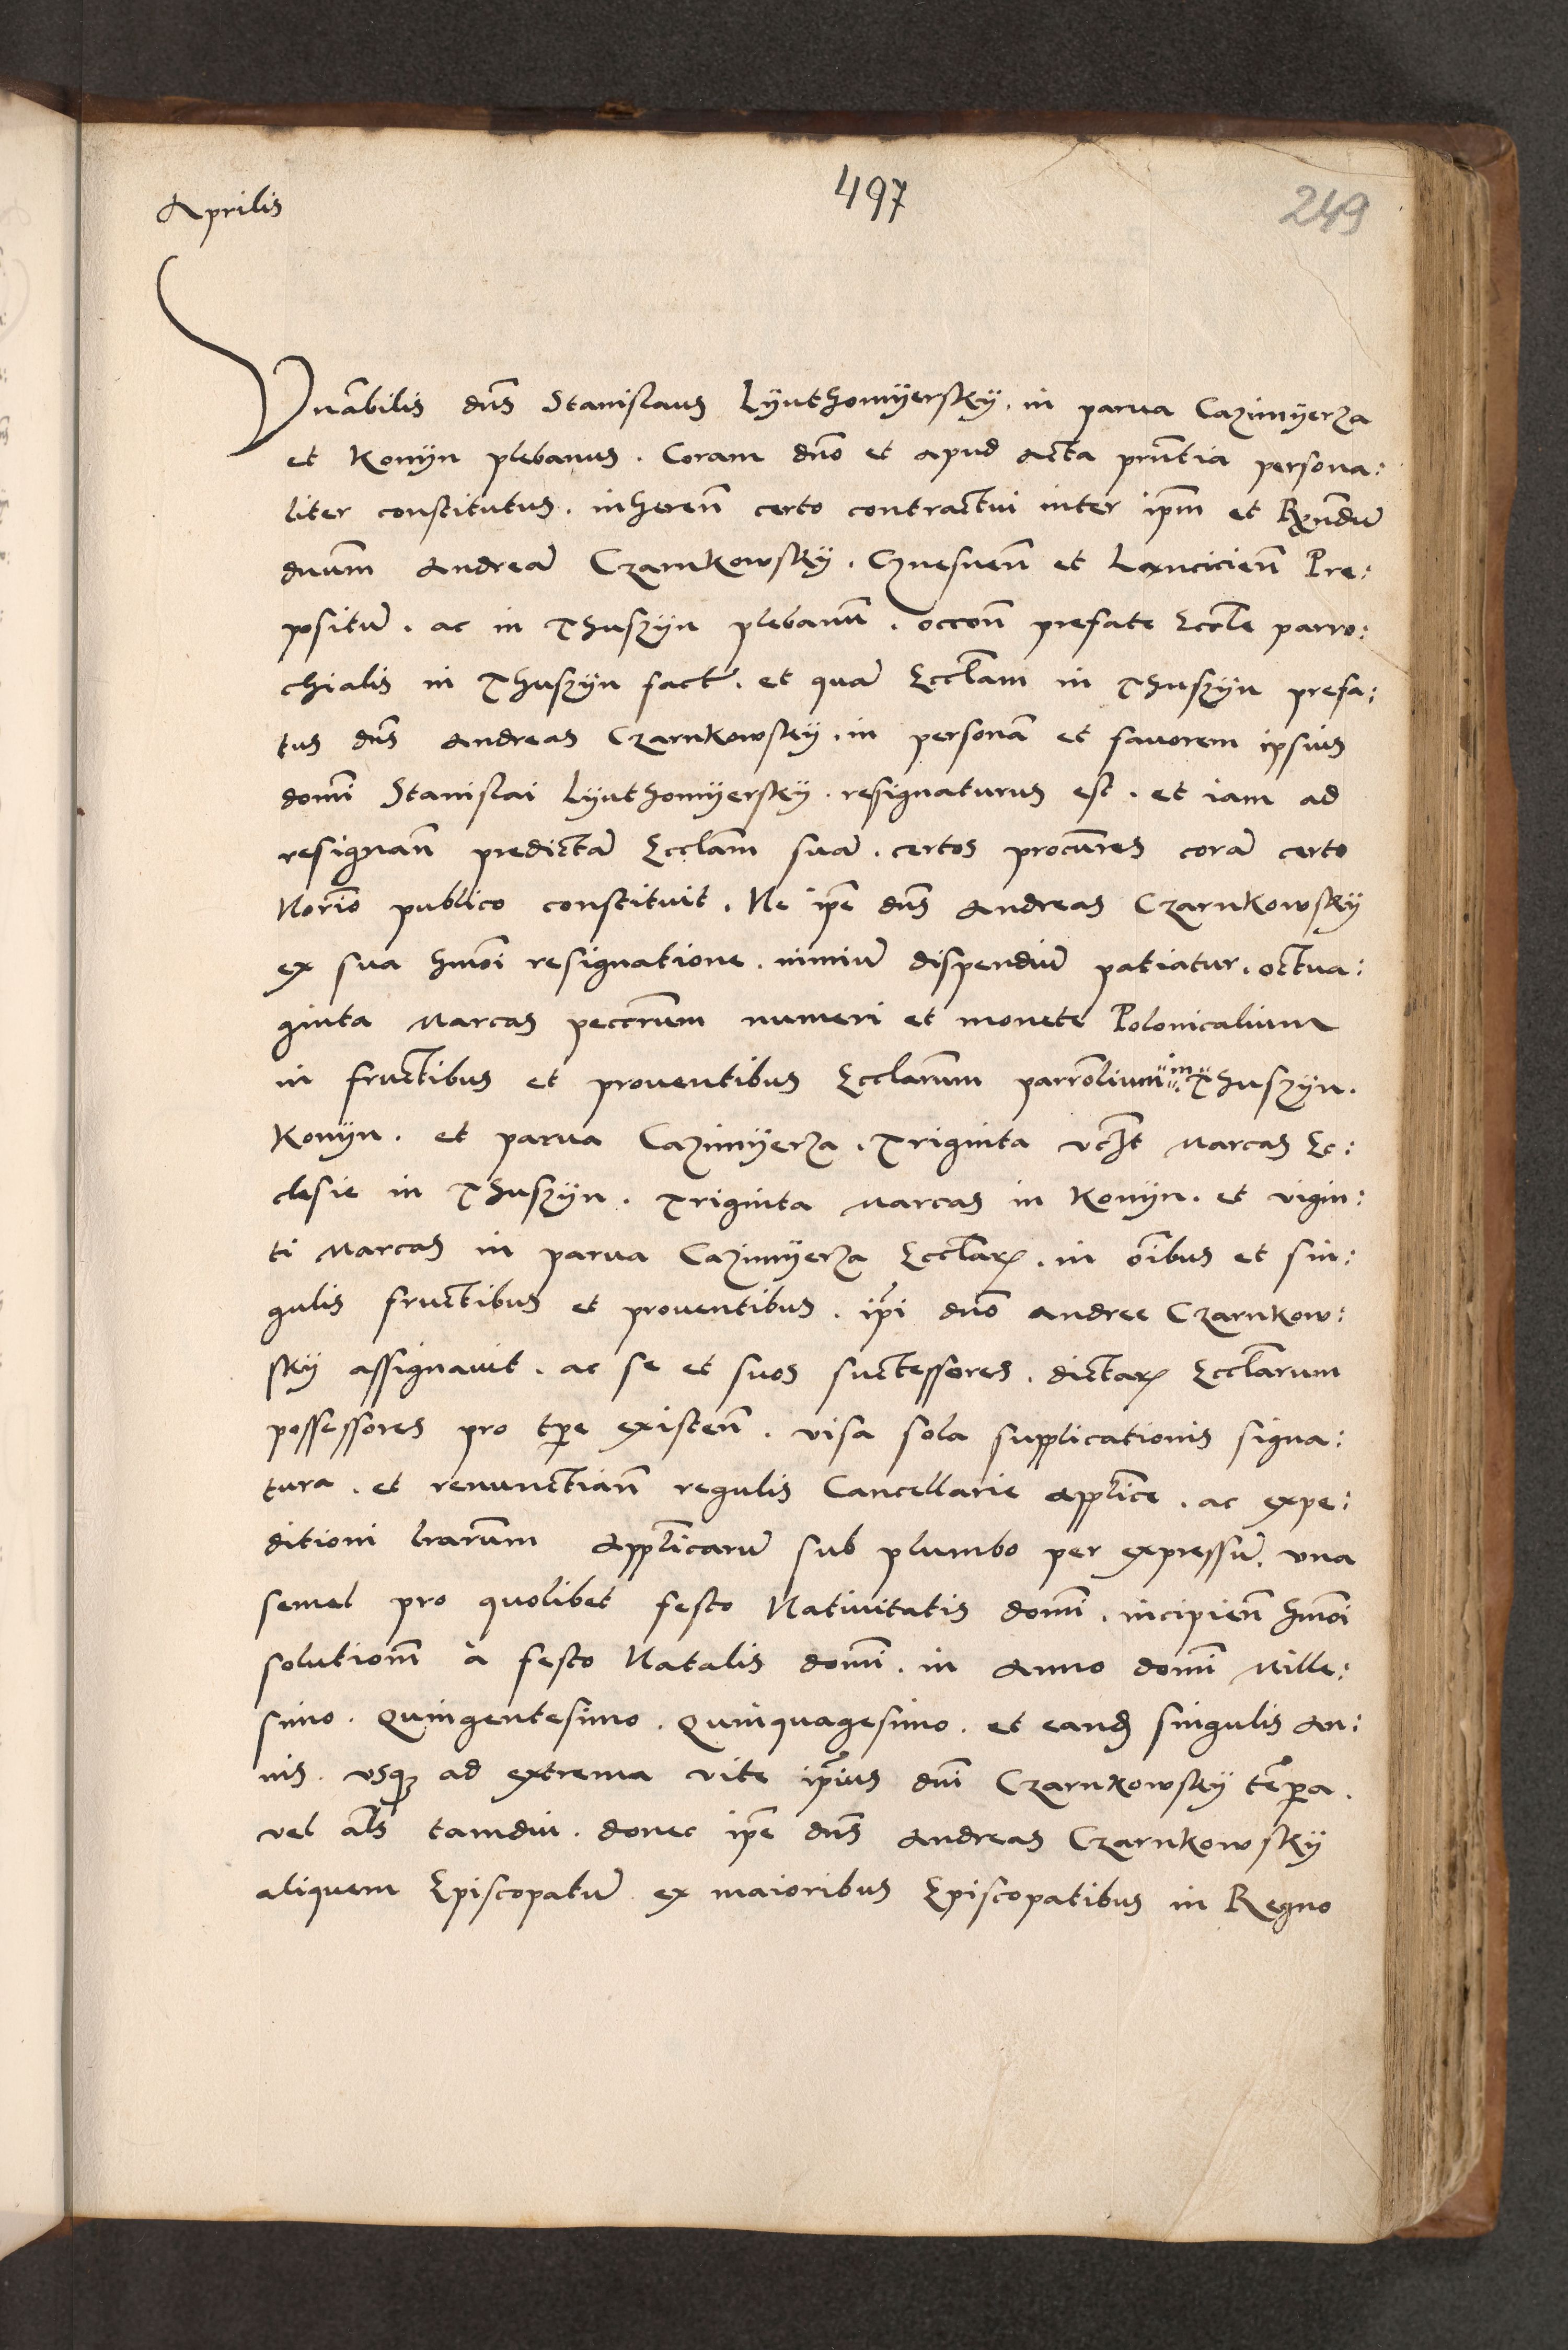 Aprilis
497
249
Vnãbilis dñs Stanislaus Lÿuthomÿerskÿ, in parua Cazimÿerza
et Konÿn plebanus. Coram dño et apud Acta prñtia persona:
liter constitutus. inhereñ certo contractui inter ipm̃ et Rx̃ndũ
dnum̃ Andreã Czarnkowskÿ. Gnesneñ et Lanncicieñ Pre:
positũ. ac in Thuszÿn plebanũ. occoñ prefate Eccl̃e parro:
chialis in Thuszÿn fact̃. et quã Eccl̃am in Thuszÿn prefa:
tus dñs Andreas Czarnkowskÿ. in personã et fauorem ipsius
domĩ Stanislai Lÿuthomÿerskÿ. resignaturus est. et iam ad
resignañ predictã Eccl̃am suã. certos procur̃es corã certo
Norĩo publico constituit. Ne ip̃e dñs Andreas Czarnkowskÿ
ex sua hmõi resignatione. nimiũ dispendiũ patiatur. octua:
ginta Marcas peccr̃um numeri et monete Polonicalium
in fructibus et prouentibus Eccl̃arum parrõlium in Thuszÿn.
Konÿn. et parua Cazimÿerza. Triginta vcz̃t Marcas Ec:
clesie in Thuszÿn. Triginta Marcas in Konÿn. et vigin:
ti Marcas in parua Cazimÿerza Eccl̃aꝝ. in õibus et sin:
gulis fructibus et prouentibus. ip̃i dño Andree Czarnkow:
skÿ assignauit. ac se et suos suctessores. dictaꝝ Eccl̃arum
possessores pro tp̃e existeñ. visa sola supplicationis signa:
tura. et renunctiañ regulis Cancellarie Appl̃ice. ac expe:
ditioni lr̃arum Appl̃icarũ sub plumbo per expressũ. vna
semel pro quolibet festo Natiuitatis domĩ. incipieñ hmõi
solutionm̃ à festo Natalis domĩ. in Anno domĩ Mille:
simo. Quingentesimo. Quinquagesimo. et eand singulis An:
nis. vsqꝫ ad extrema vite ip̃ius dñi Czarnkowskÿ tẽpa.
vel al̃s tamdiu. donec ip̃e dñs Andreas Czarnkowskÿ
aliquem Episcopatũ ex maioribus Episcopatibus in Regno